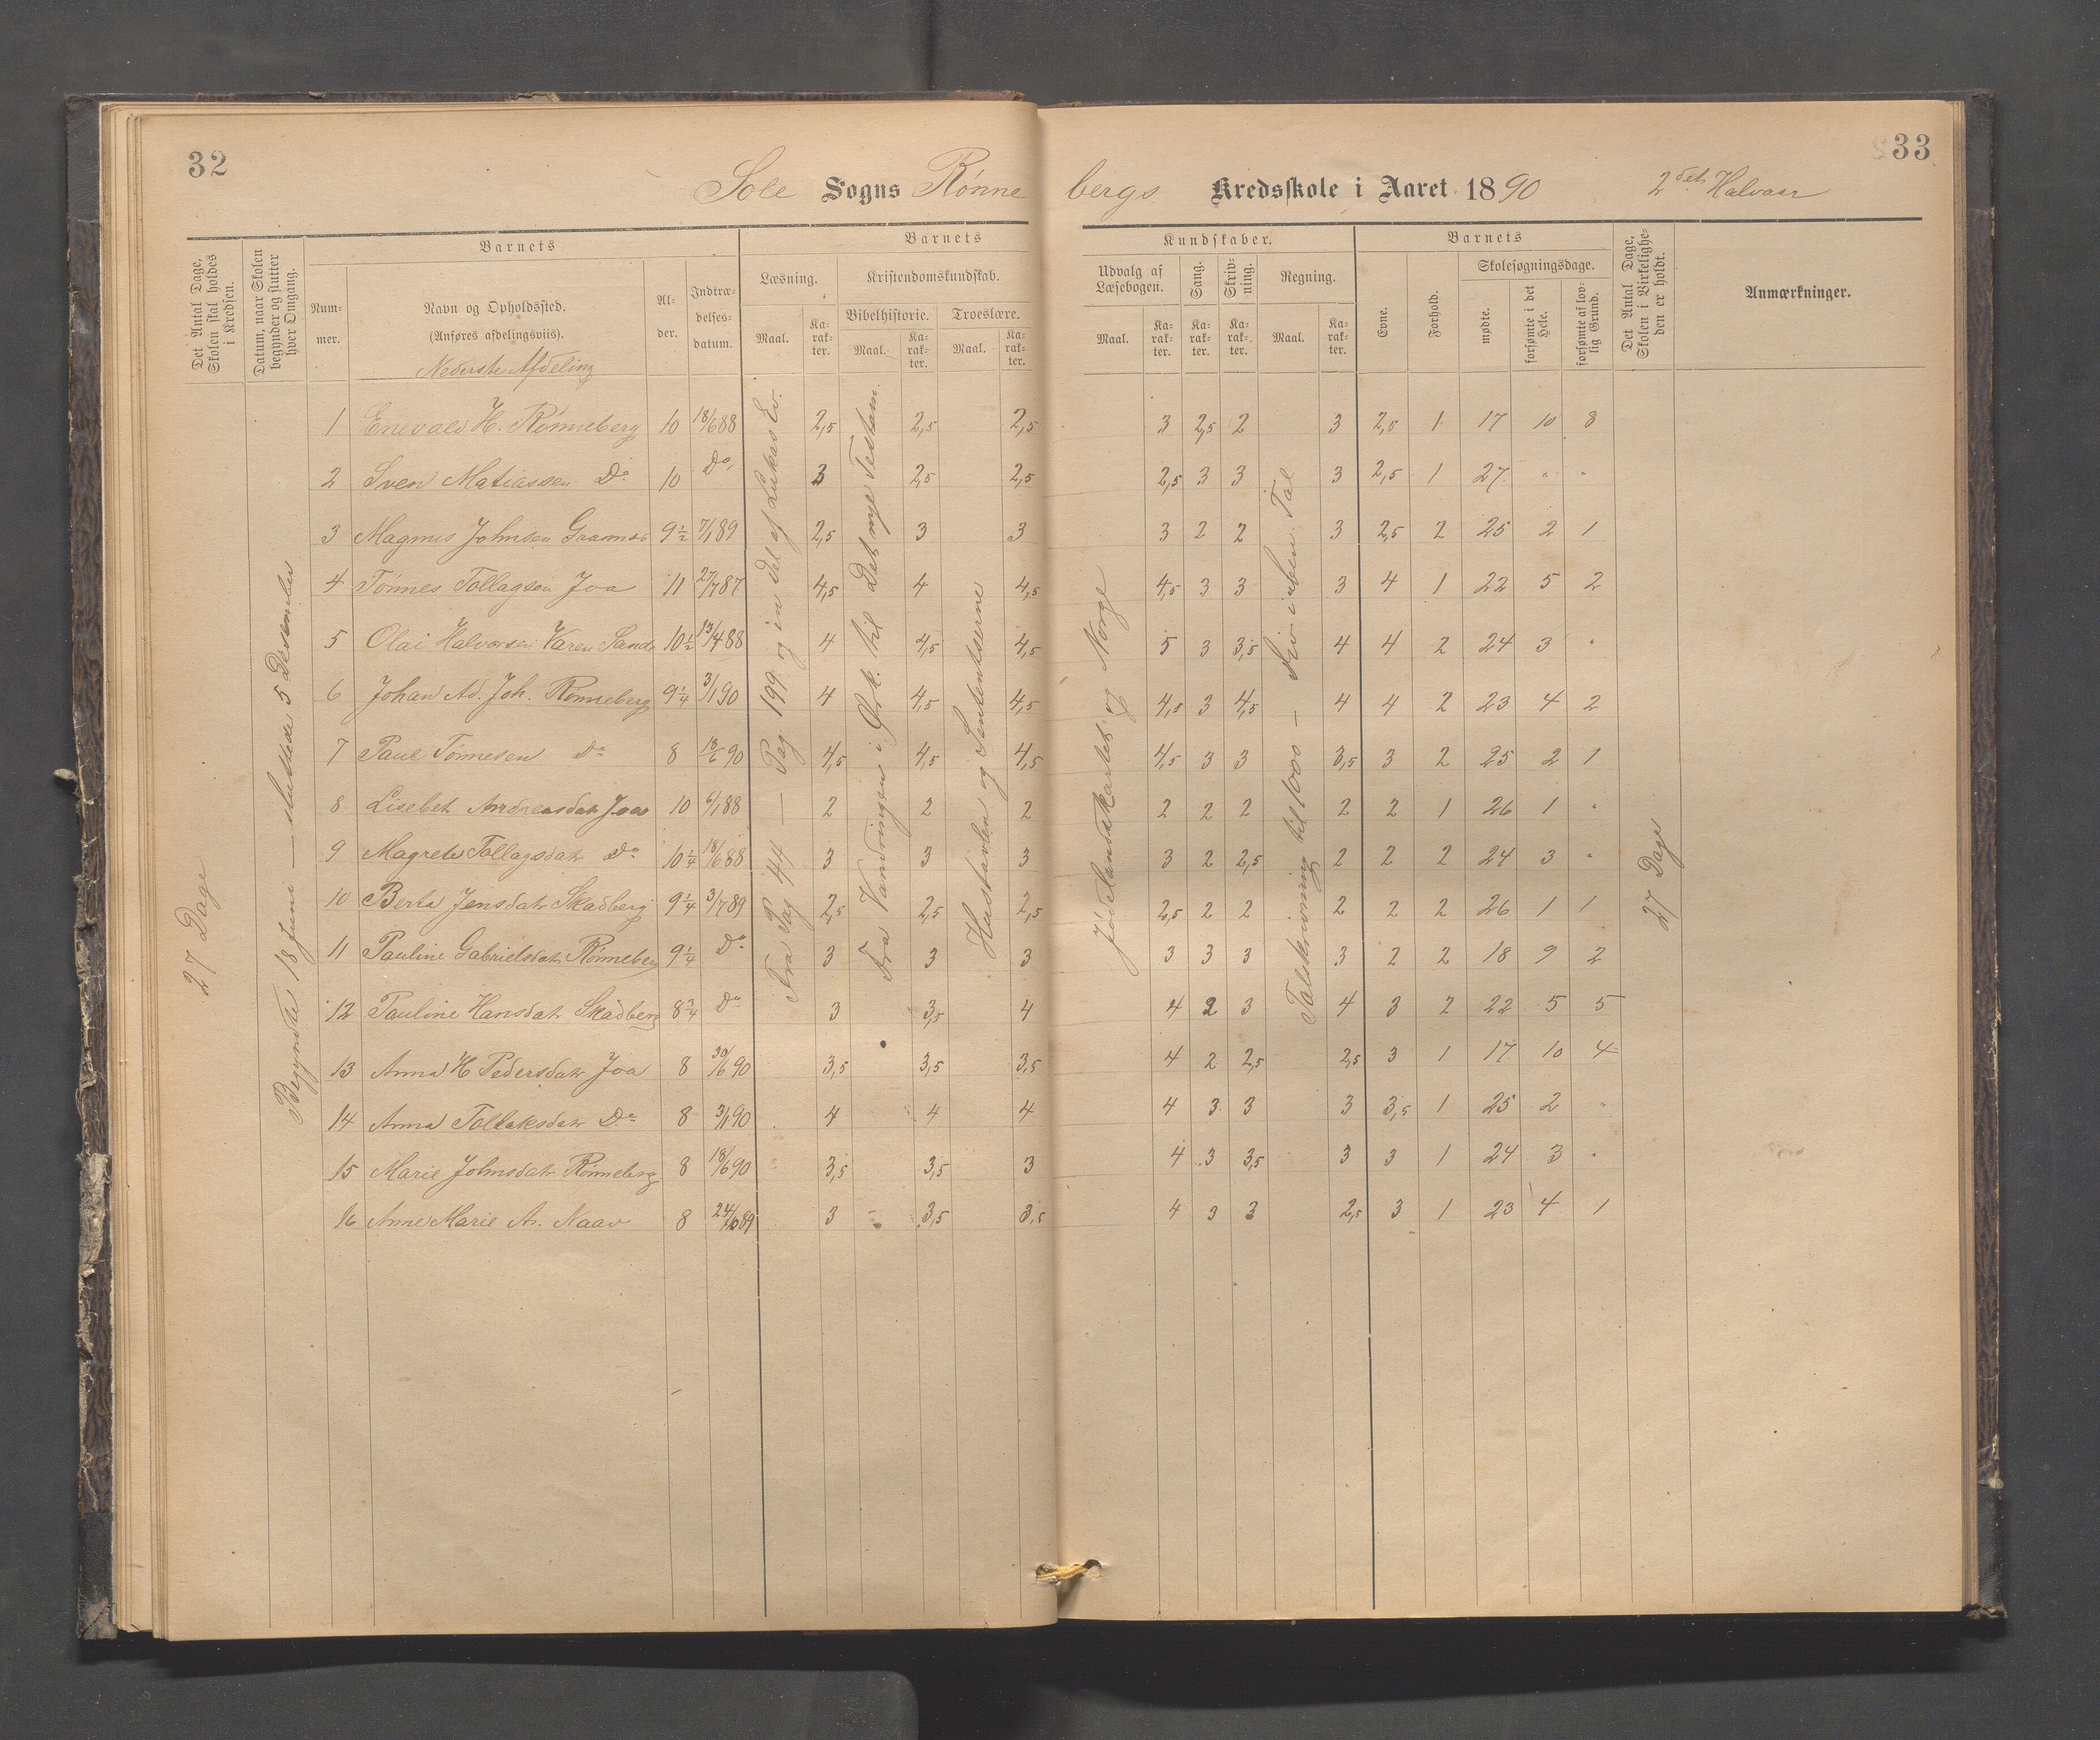 32
33
Sole Sogns Rønne bergs Kredsskole i Aaret 1890 2det Halvaar
Det Antal Dage, Skolen skal holdes i Kredsen.
Datum, naar Skolen begynder og slutter hver Omgang.
Barnets
Num-mer.
Navn og Opholdssted.
(Anføres afdelingsviis).
Nederste Afdeling
Al-der.
Indtræ-delses-datum.
Barnets Kundskaber.
Læsning.
Kristendomskundskab.
Bibelhistorie.
Troeslære.
Maal. Ka-rak-ter. Maal. Ka-rak-ter. Maal. Ka-rak-ter.
Udvalg af Læsebogen.
Sang.
Skriv-ning.
Regning.
Maal. Ka-rak-ter. Ka-rak-ter. Ka-rak-ter. Maal. Ka-rak-ter.
Barnets
Evne.
Forhold.
Skolesøgningsdage.
mødte.
forsømte i det Hele.
forsømte af lov-lig Grund.
Det Antal Dage, Skolen i Virkelighe-den er holdt.
Anmærkninger.
27 Dage
Begyndte 18 Juni — sluttede 5 Desember
Fra Pag 44 — Pag 199 og en del af Lukas Ev.
Fra Vandringen i Ørk. til Det nye Testam.
Hustavlen og Sententserne
Jødelandskartet og Norge
Talskrivning til 1000 — Tal
27 Dage
1 Enevald H. Rønneberg 10 18/6 88 2,5 2,5 2,5 3 2,5 2 3 2,5 1 17 10 8
2 Sven Matiassen Do 10 Do 3 2,5 2,5 2,5 3 3 3 2,5 1 27 " "
3 Magnus Johnsen 9½ 7/1 89 2,5 3 3 3 2 2 3 2,5 2 25 2 1
4 Tønnes Tollagsen Joa 11 27/7 87 4,5 4 4,5 4,5 3 3 3 4 1 22 5 2
5 Olai Halvorsen Karen Sande 10½ 13/4 88 4 4,5 4,5 5 3 3,5 4 4 2 24 3 "
6 Johan Ad. Joh. Rønneberg 9¼ 3/1 90 4 4,5 4,5 4,5 3 4,5 4 4 2 23 4 2
7 Paul Tønnesen Do 8 18/6 90 4,5 4,5 4,5 4,5 3 3 3,5 3 2 25 2 1
8 Lisebet Andreasdatr Joa 10 6/1 88 2 2 2 2 2 2 2 2 1 26 1 "
9 Magrete Tollagsdatr Do 10¼ 18/6 88 3 3 3 3 2 2,5 2 2 2 24 3 "
10 Berta Jensdatr Skadberg 9¼ 3/7 89 2,5 2,5 2,5 2,5 2 2 2 2 2 26 1 1
11 Pauline Gabrielsdatr Rønneberg 9¼ Do 3 3 3 3 3 3 3 2 2 18 9 2
12 Pauline Hansdatr Skadberg 8¾ Do 3 3,5 4 4 2 3 4 3 2 22 5 5
13 Anna H Pedersdatr Joa 8 30/6 90 3,5 3,5 3,5 4 2 2,5 2,5 3 1 17 10 4
14 Anna Tollaksdatr Do 8 3/1 90 4 4 4 4 3 3 3 3,5 1 25 2 "
15 Marie Johnsdatr Rønneberg 8 18/6 90 3,5 3,5 3 4 3 3,5 3 3 1 24 3 "
16 Anne Marie A. Naav 8 24/10 89 3 3,5 3,5 4 3 3 2,5 3 1 23 4 1